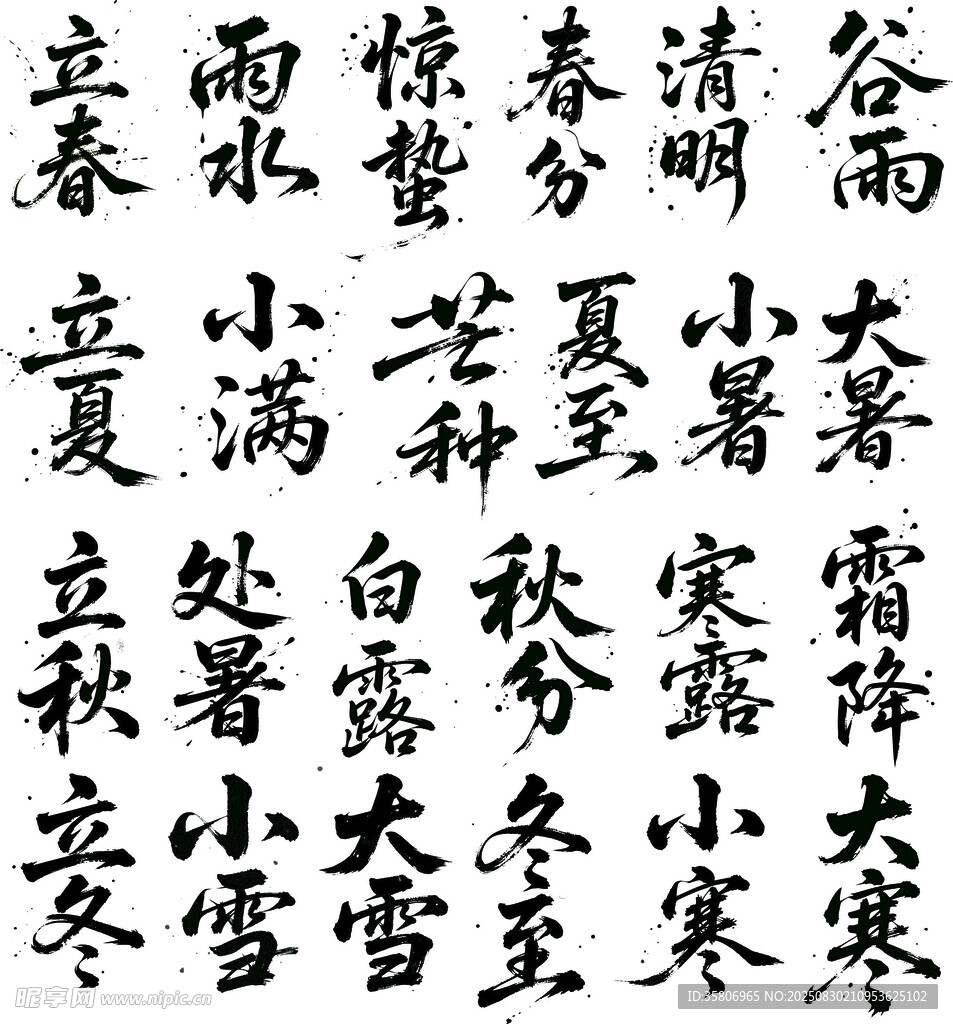 立春
雨水
惊蛰
春分
清明
谷雨
立夏
小满
芒种
夏至
小暑
大暑
立秋
处暑
白露
秋分
寒露
霜降
立冬
小雪
大雪
冬至
小寒
大寒
昵享网 www.nipic.cn
ID:35806965 NO:20250830210953625102